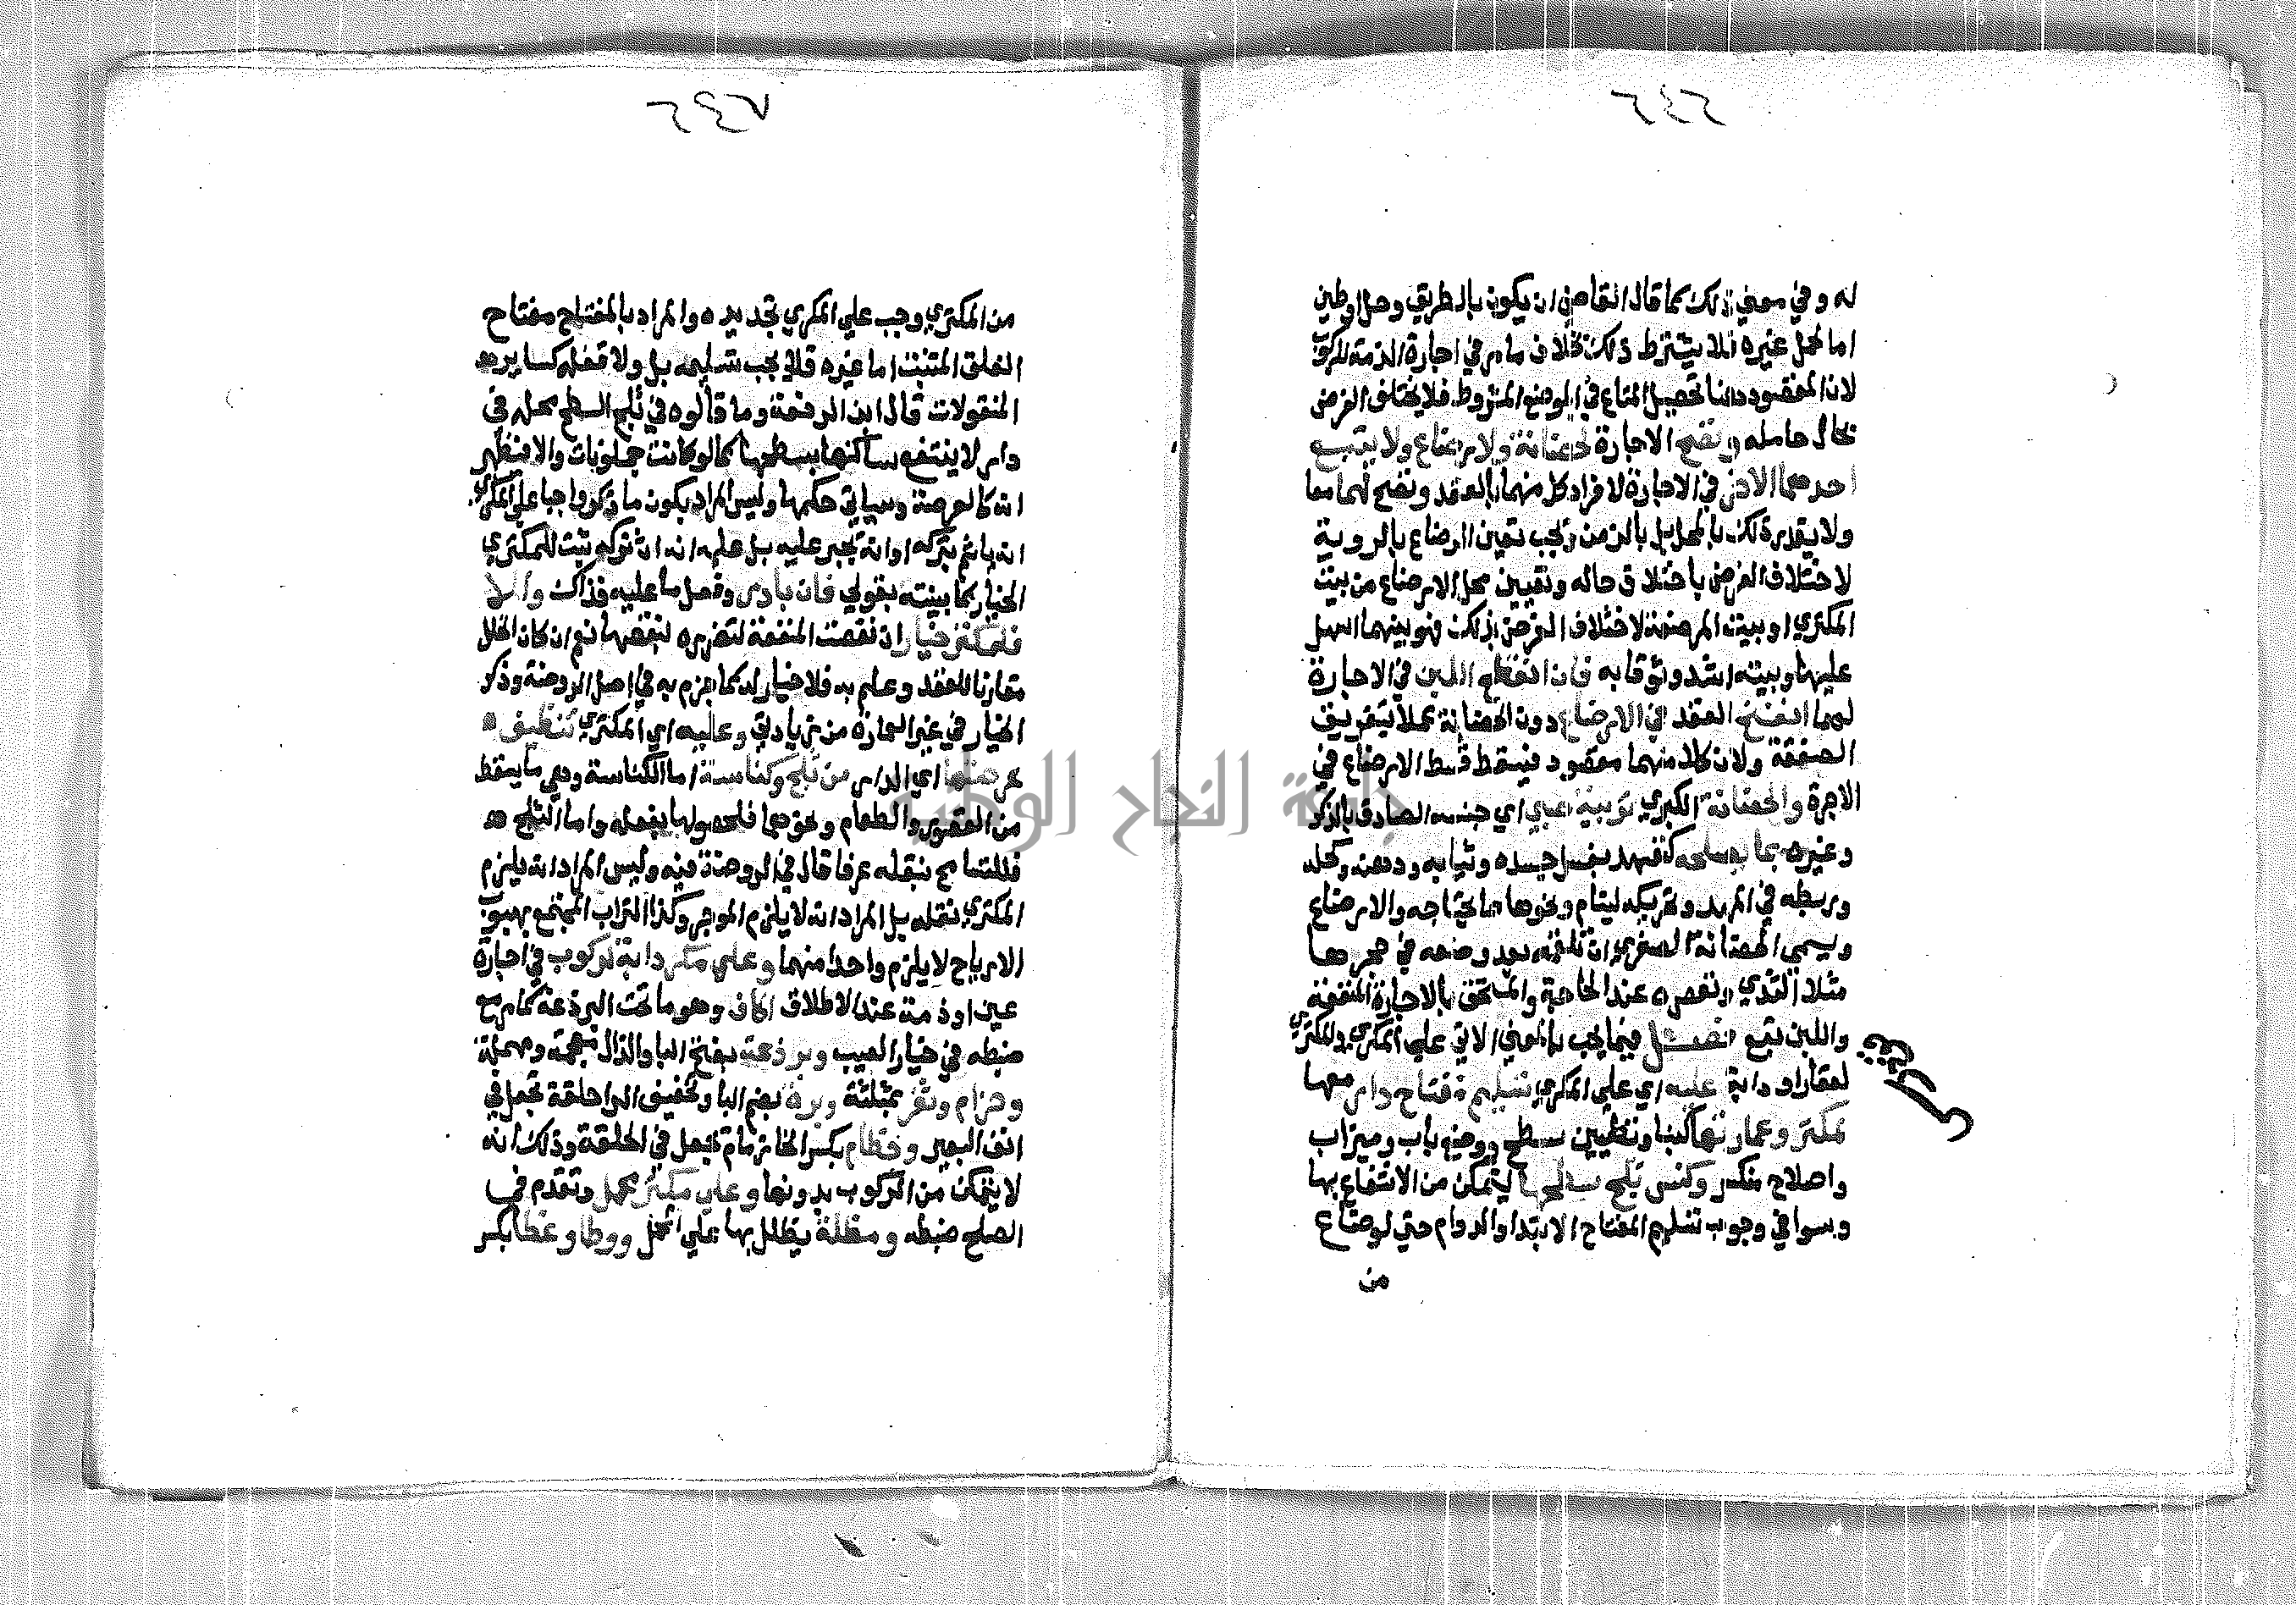 ٢٤٦
له وفي معني ذلك كما قال القاضي ان يكون بالطريق وحل اوطين
اما لحمل غيره فلا يشترط ذلك بخلاف ما مر في اجارة الذمة للركوب
لان المقصود هنا تحصيل المتاع في الموضع المشروط فلا يختلف الغرض
بحال حامله وتصح الاجارة لحضانة ولارضاع ولا يتبع
احدهما الاخر في الاجارة لافراد كل منهما بالعقد وتصح لهما معا
ولا يقدر ذلك بالمحل بل بالزمن ويجب تعيين الرضاع بالروية
لاختلاف الغرض باختلاف حاله وتعيين محل الارضاع من بيت
المكتري او بيت المرضعة لاختلاف الغرض بذلك فهو بينهما اسهل
عليها وبيته اشد وثوقا به فان انقطع اللبن في الاجارة
لهما انفسخ العقد في الارضاع دون الحضانة عملا بتفريق
الصفقة ولان كلا منهما مقصود فيسقط قسط الارضاع في
الاجرة والحضانة الكبري تربية صبي اي جنسه الصادق بالذكر
وغيره بما يصلحه كتعهده بغسل جسده وثيابه ودهنه وكحله
وربطه في المهد وتحريكه لينام ونحوها مما يحتاجه والارضاع
ويسمى الحضانة الصغري ان تلقمه بعد وضعه في حجرها
مثلا الثدي وتعصره عند الحاجة والمستحق بالاجارة المنفعة
واللبن تبع فصل فيما يجب بالمعني الاتي علي المكري والمكتري
لعقار او دابة عليه اي علي المكري تسليم مفتاح دار معها
لمكتر وعمارتها كبنا وتطيين سطح ووضع باب وميزاب
واصلاح منكسر وكنس ثلج سطحها ليتمكن من الانتفاع بها
وسوا في وجوب تسليم المفتاح الابتدا والدوام حتي لو ضاع
من
٢٤٧
من المكتري وجب علي المكري تجديده والمراد بالمفتاح مفتاح
الغلق المثبت اما غيره فلا يجب تسليمه بل ولا قفله كساير
المنقولات قال ابن الرفعة وما قالوه في ثلج السطح محله في
دار لا ينتفع ساكنها بسطحها كما لو كانت جملونات والا فيظهر
انه كالعرصة وسياتي حكمها وليس المراد بكون ما ذكر واجبا علي المكري
انه ياثم بتركه او انه يجبر عليه بل هله انه ان تركه ثبت للمكتري
الخيار كما بينته بقولي فان بادر وفعل ما عليه فذاك والا
فلمكتر خيار ان نقصت المنفعة لتضرره بنقصها نعم ان كان الخلل
مقارنا للعقد وعلم به فلا خيار له كما جزم به في اصل الروضة وذكر
الخيار في غير العمارة من زيادتي وعليه اي المكتري تنظيف
عرصتها اي الدار من ثلج وكناسة اما الكناسة وهي ما يسقط
من القشور والطعام ونحوهما فلحصولها بفعله واما الثلج
فللتسامح بنقله عرفا قال في الروضة فيه وليس المراد انه يلزم
المكتري نقله بل المراد انه لا يلزم الموجر وكذا التراب المجتمع بهبوب
الارياح لا يلزم واحدا منهما وعلي مكر دابة لركوب في اجارة
عين او ذمة عند الاطلاق اكاف وهو ما تحت البرذعة كما مر مع
ضبطه في خيار العيب وبرذعة بفتح البا والذال معجمة ومهملة
وحزام وثفر بمثلثة وبرة بضم البا وتخفيف الرا حلقة تجعل في
انف البعير وخطام بكسر الخا زمام يجعل في الحلقة وذلك انه
لا يتمكن من الركوب بدونها وعلي مكتر محمل وتقدم في
الصلح ضبطه ومظلة يظلل بها علي المحمل ووطا وغطا بكسر
جامعة النجاح الوطنية